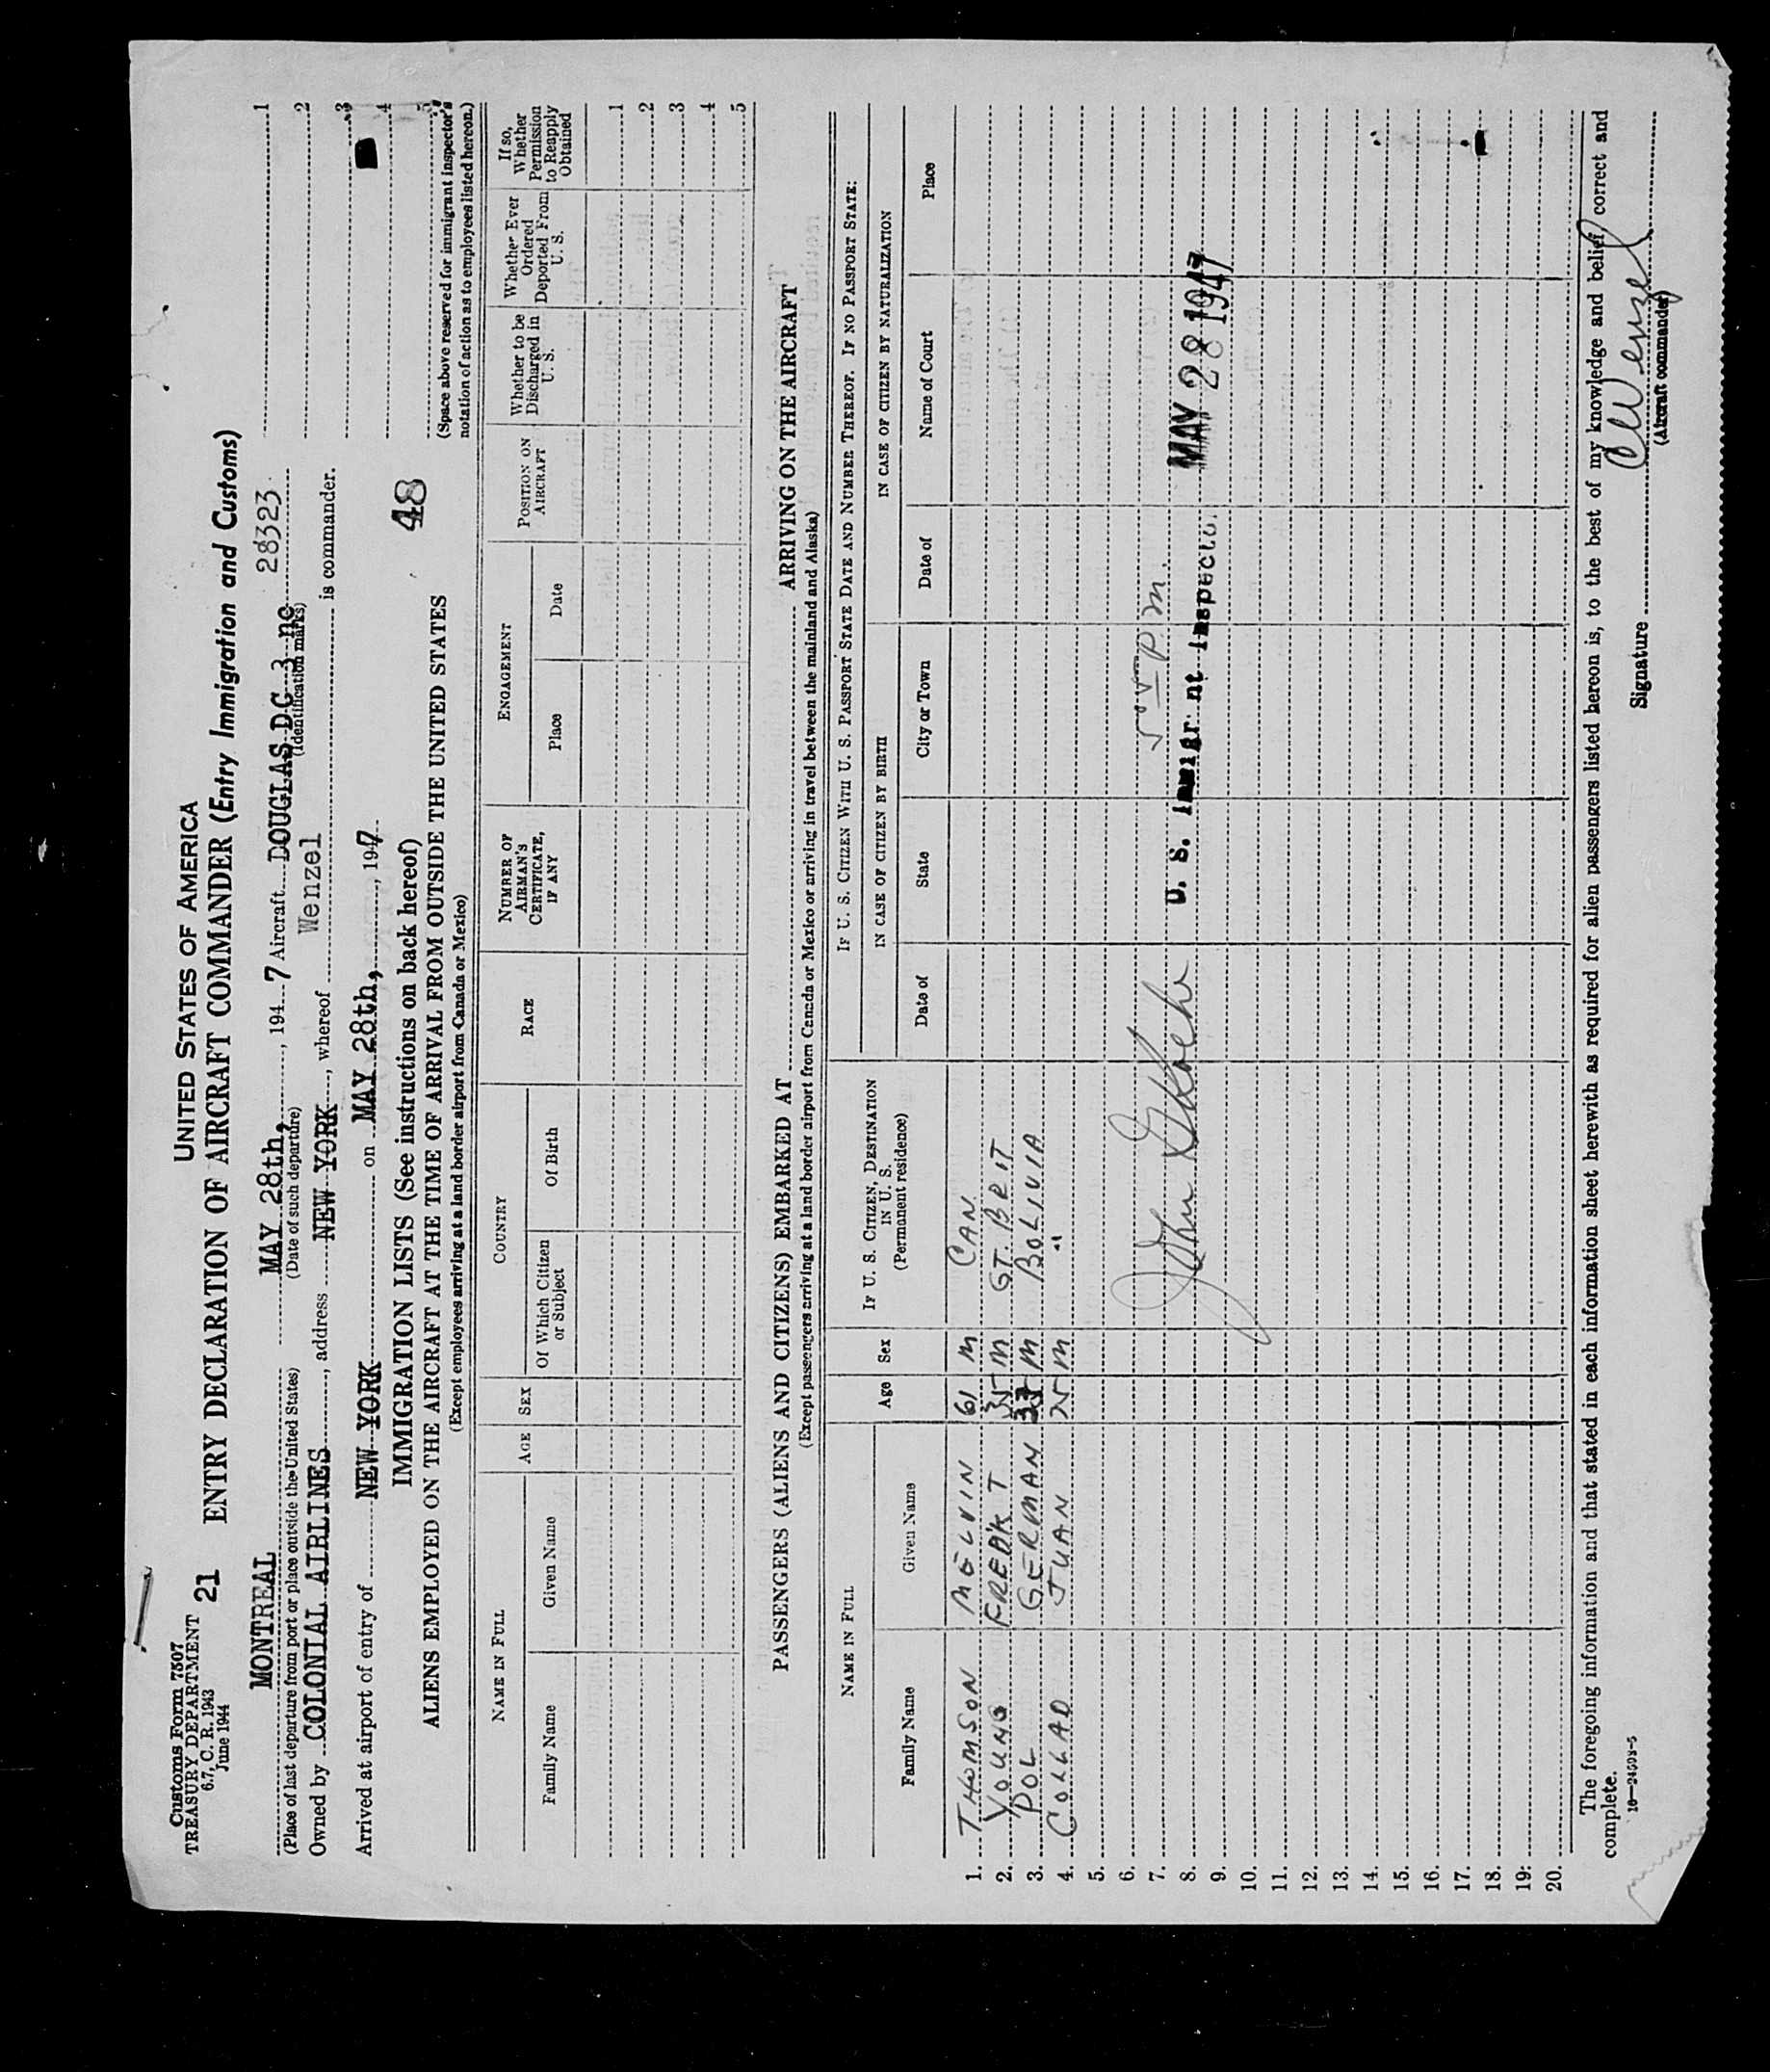 Customs Form 7507
TREASURY DEPARTMENT
6.7, C. R. 1943
June 1944
21
UNITED STATES OF AMERICA
ENTRY DECLARATION OF AIRCRAFT COMMANDER (Entry Immigration and Customs)
MONTREAL MAY 28th, , 194 7 Aircraft DOUGLAS DC 3 nc 28323
(Place of last departure from port or place outside the United States) (Date of such departure) (Identification marks)
Owned by COLONIAL AIRLINES , address NEW YORK , whereof Wenzel is commander.
Arrived at airport of entry of NEW YORK on MAY 28th, , 1947
1
2
3
4
5
(Space above reserved for immigrant inspector's
notation of action as to employees listed hereon.)
IMMIGRATION LISTS (See instructions on back hereof)
48
ALIENS EMPLOYED ON THE AIRCRAFT AT THE TIME OF ARRIVAL FROM OUTSIDE THE UNITED STATES
(Except employees arriving at a land border airport from Canada or Mexico)
NAME IN FULL
Family Name
Given Name
AGE
SEX
COUNTRY
Of Which Citizen
or Subject
Of Birth
RACE
NUMBER OF
AIRMAN'S
CERTIFICATE,
IF ANY
ENGAGEMENT
Place
Date
POSITION ON
AIRCRAFT
Whether to be
Discharged in
U. S.
Whether Ever
Ordered
Deported From
U. S.
If so,
Whether
Permission
to Reapply
Obtained
1
2
3
4
5
PASSENGERS (ALIENS AND CITIZENS) EMBARKED AT ARRIVING ON THE AIRCRAFT
(Except passengers arriving at a land border airport from Canada or Mexico or arriving in travel between the mainland and Alaska)
NAME IN FULL
Family Name
Given Name
Age
Sex
IF U. S. CITIZEN, DESTINATION
IN U. S.
(Permanent residence)
IF U. S. CITIZEN WITH U. S. PASSPORT STATE DATE AND NUMBER THEREOF. IF NO PASSPORT STATE:
IN CASE OF CITIZEN BY BIRTH
IN CASE OF CITIZEN BY NATURALIZATION
Date of
State
City or Town
Date of
Name of Court
Place
1. THOMSON MELVIN 61 M CAN
2. YOUNG FRED'K T 35 M GT. BRIT
3. POL GERMAN M BOLIVIA
4. COLLAD JUAN 25 M "
5.
6.
7.
8.
9.
10.
11.
12.
13.
14.
15.
16.
17.
18.
19.
20.
John
U. S. Immigrant Inspector
MAY 28 1947
The foregoing information and that stated in each information sheet herewith as required for alien passengers listed hereon is, to the best of my knowledge and belief, correct and
complete.
16—24508-5
Signature C Wenzel
(Aircraft commander)